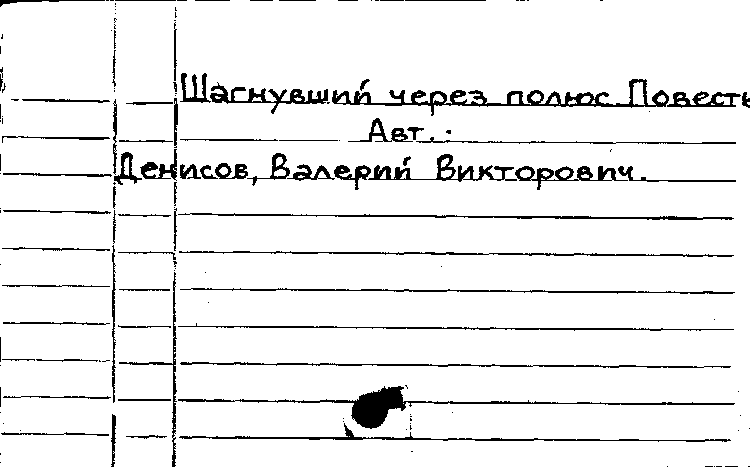 Шагнувший через полюс. Повесть
Авт.:
Денисов, Валерий Викторович.